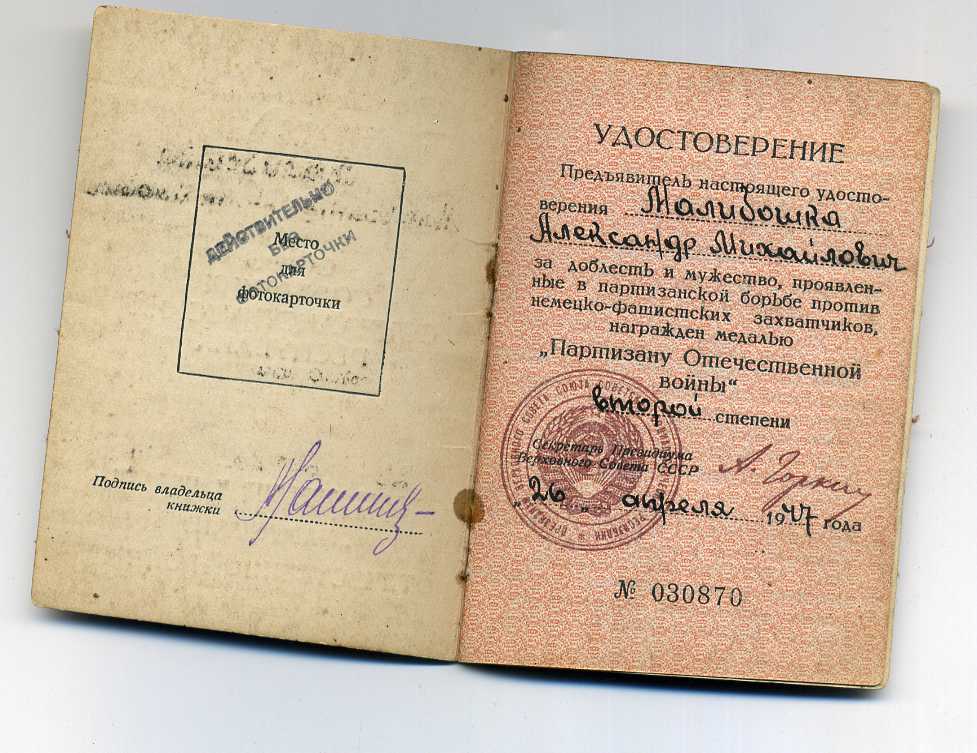 ДЕЙСТВИТЕЛЬНО
БЕЗ
ФОТОКАРТОЧКИ
Место
для
фотокарточки
Подпись владельца
книжки
УДОСТОВЕРЕНИЕ
Предъявитель настоящего удосто-
верения Малибошка
Александр Михайлович
за доблесть и мужество, проявлен-
ные в партизанской борьбе против
немецко-фашистских захватчиков,
награжден медалью
„Партизану Отечественной
войны“
второй степени
Секретарь Президиума
Верховного Совета СССР А. Горкин
"26" апреля 1947 года
№ 030870